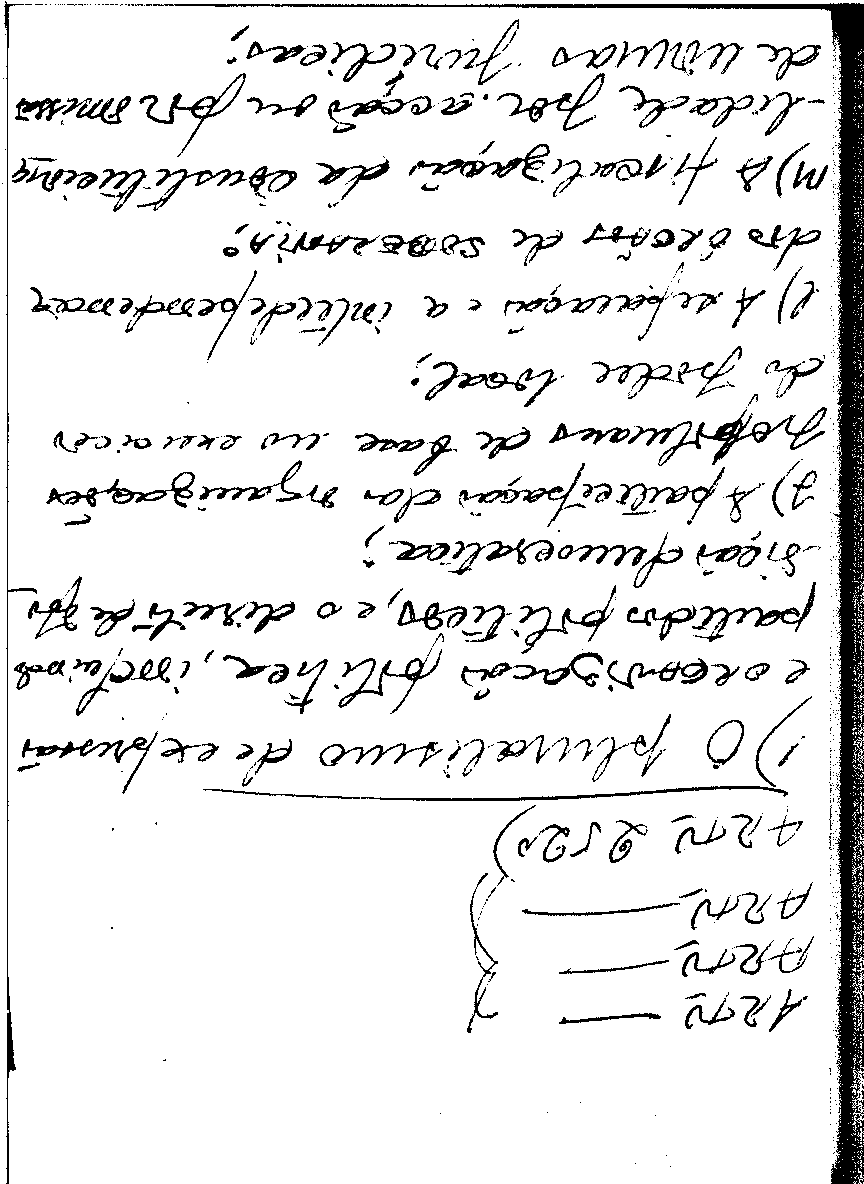 ARTº —
ARTº —
ARTº —
ARTº 252º)
i) O pluralismo de expressão
e organização política, incluindo
partidos políticos, e o direito de opo-
-sição democrática;
j) A participação das organizações
populares de base no exercício
do poder local;
l) A separação e a interdependência
dos órgãos de soberania;
m) A fiscalização da constituciona
-lidade por acção ou por omissão
de normas jurídicas;